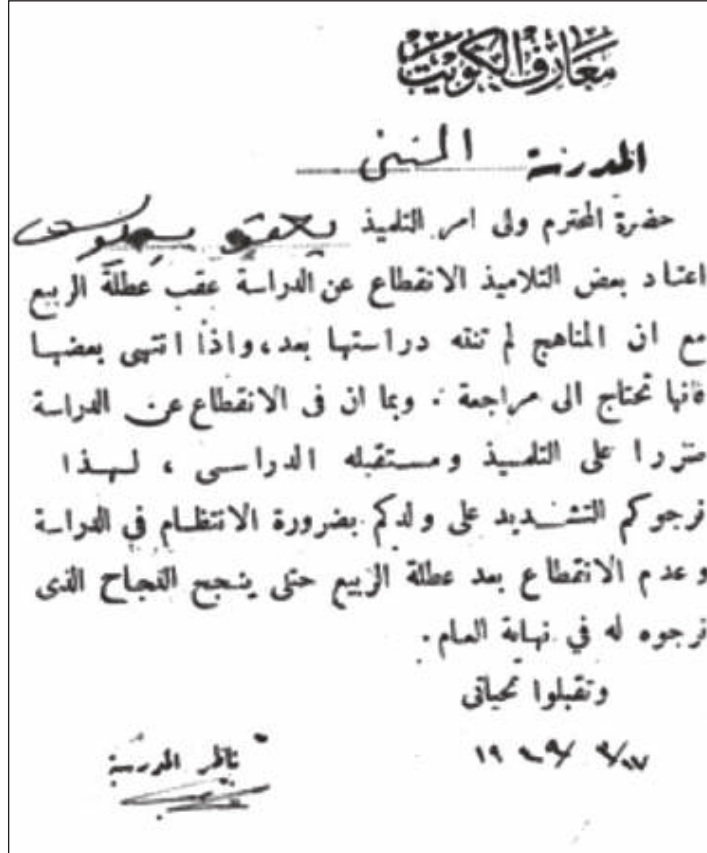 معارف الكويت
المدرسة المثنى
حضرة المحترم ولى امر التلميذ يعقوب يوسف
اعتاد بعض التلاميذ الانقطاع عن الدراسة عقب عطلة الربيع
مع ان المناهج لم تنته دراستها بعد، واذا انتهى بعضها
فانها تحتاج الى مراجعة . وبما ان فى الانقطاع عن الدراسة
ضررا على التلميذ ومستقبله الدراسى ، لهذا
نرجوكم التشديد على ولدكم بضرورة الانتظام في الدراسة
وعدم الانقطاع بعد عطلة الربيع حتى ينجح النجاح الذى
نرجوه له في نهاية العام .
وتقبلوا تحياتى
ناظر المدرسة